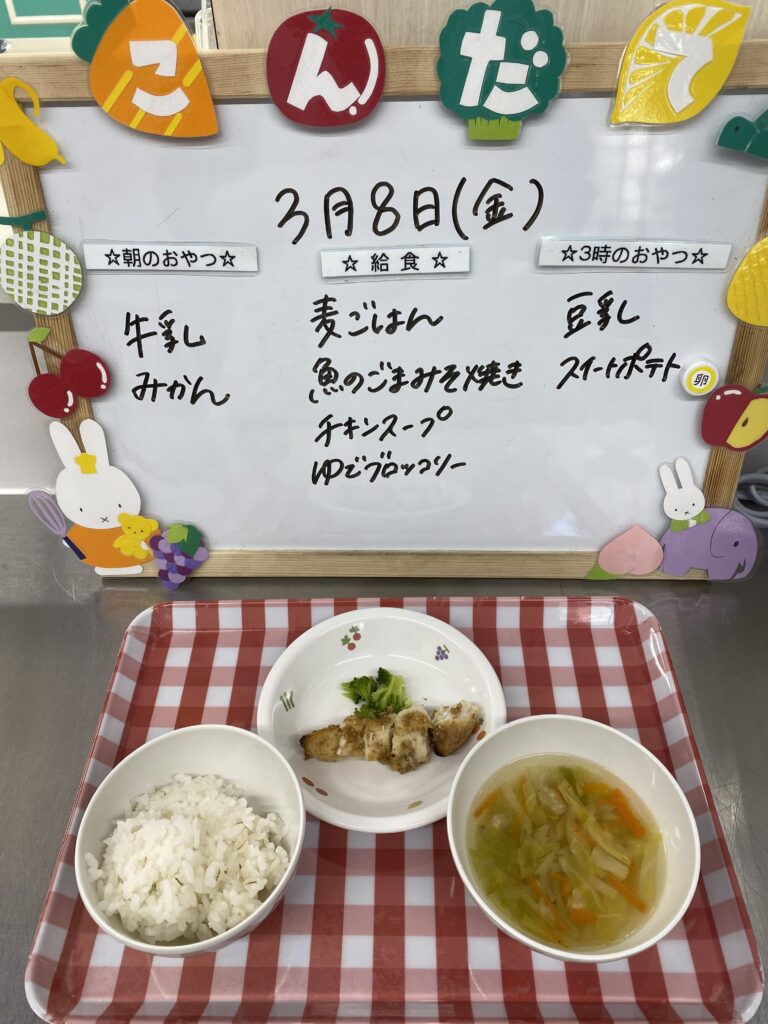 こんだて
3月8日(金)
☆朝のおやつ☆
牛乳
みかん
☆給食☆
麦ごはん
魚のごまみそ焼き
チキンスープ
ゆでブロッコリー
☆3時のおやつ☆
豆乳
スイートポテト 卵